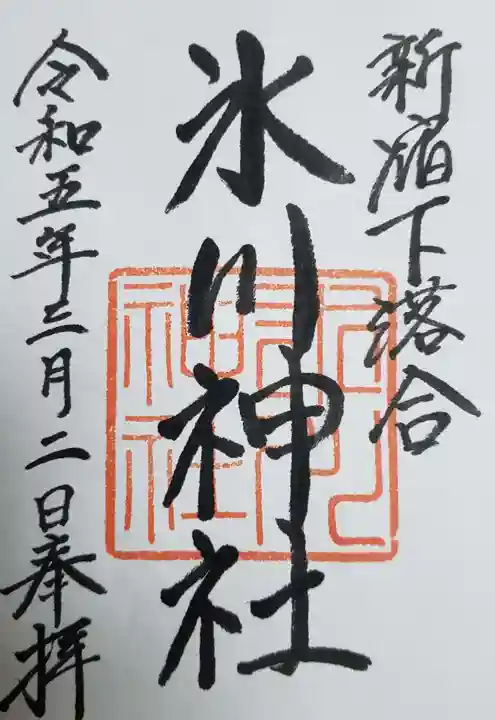 新宿下落合
氷川神社
令和五年三月二日奉拝